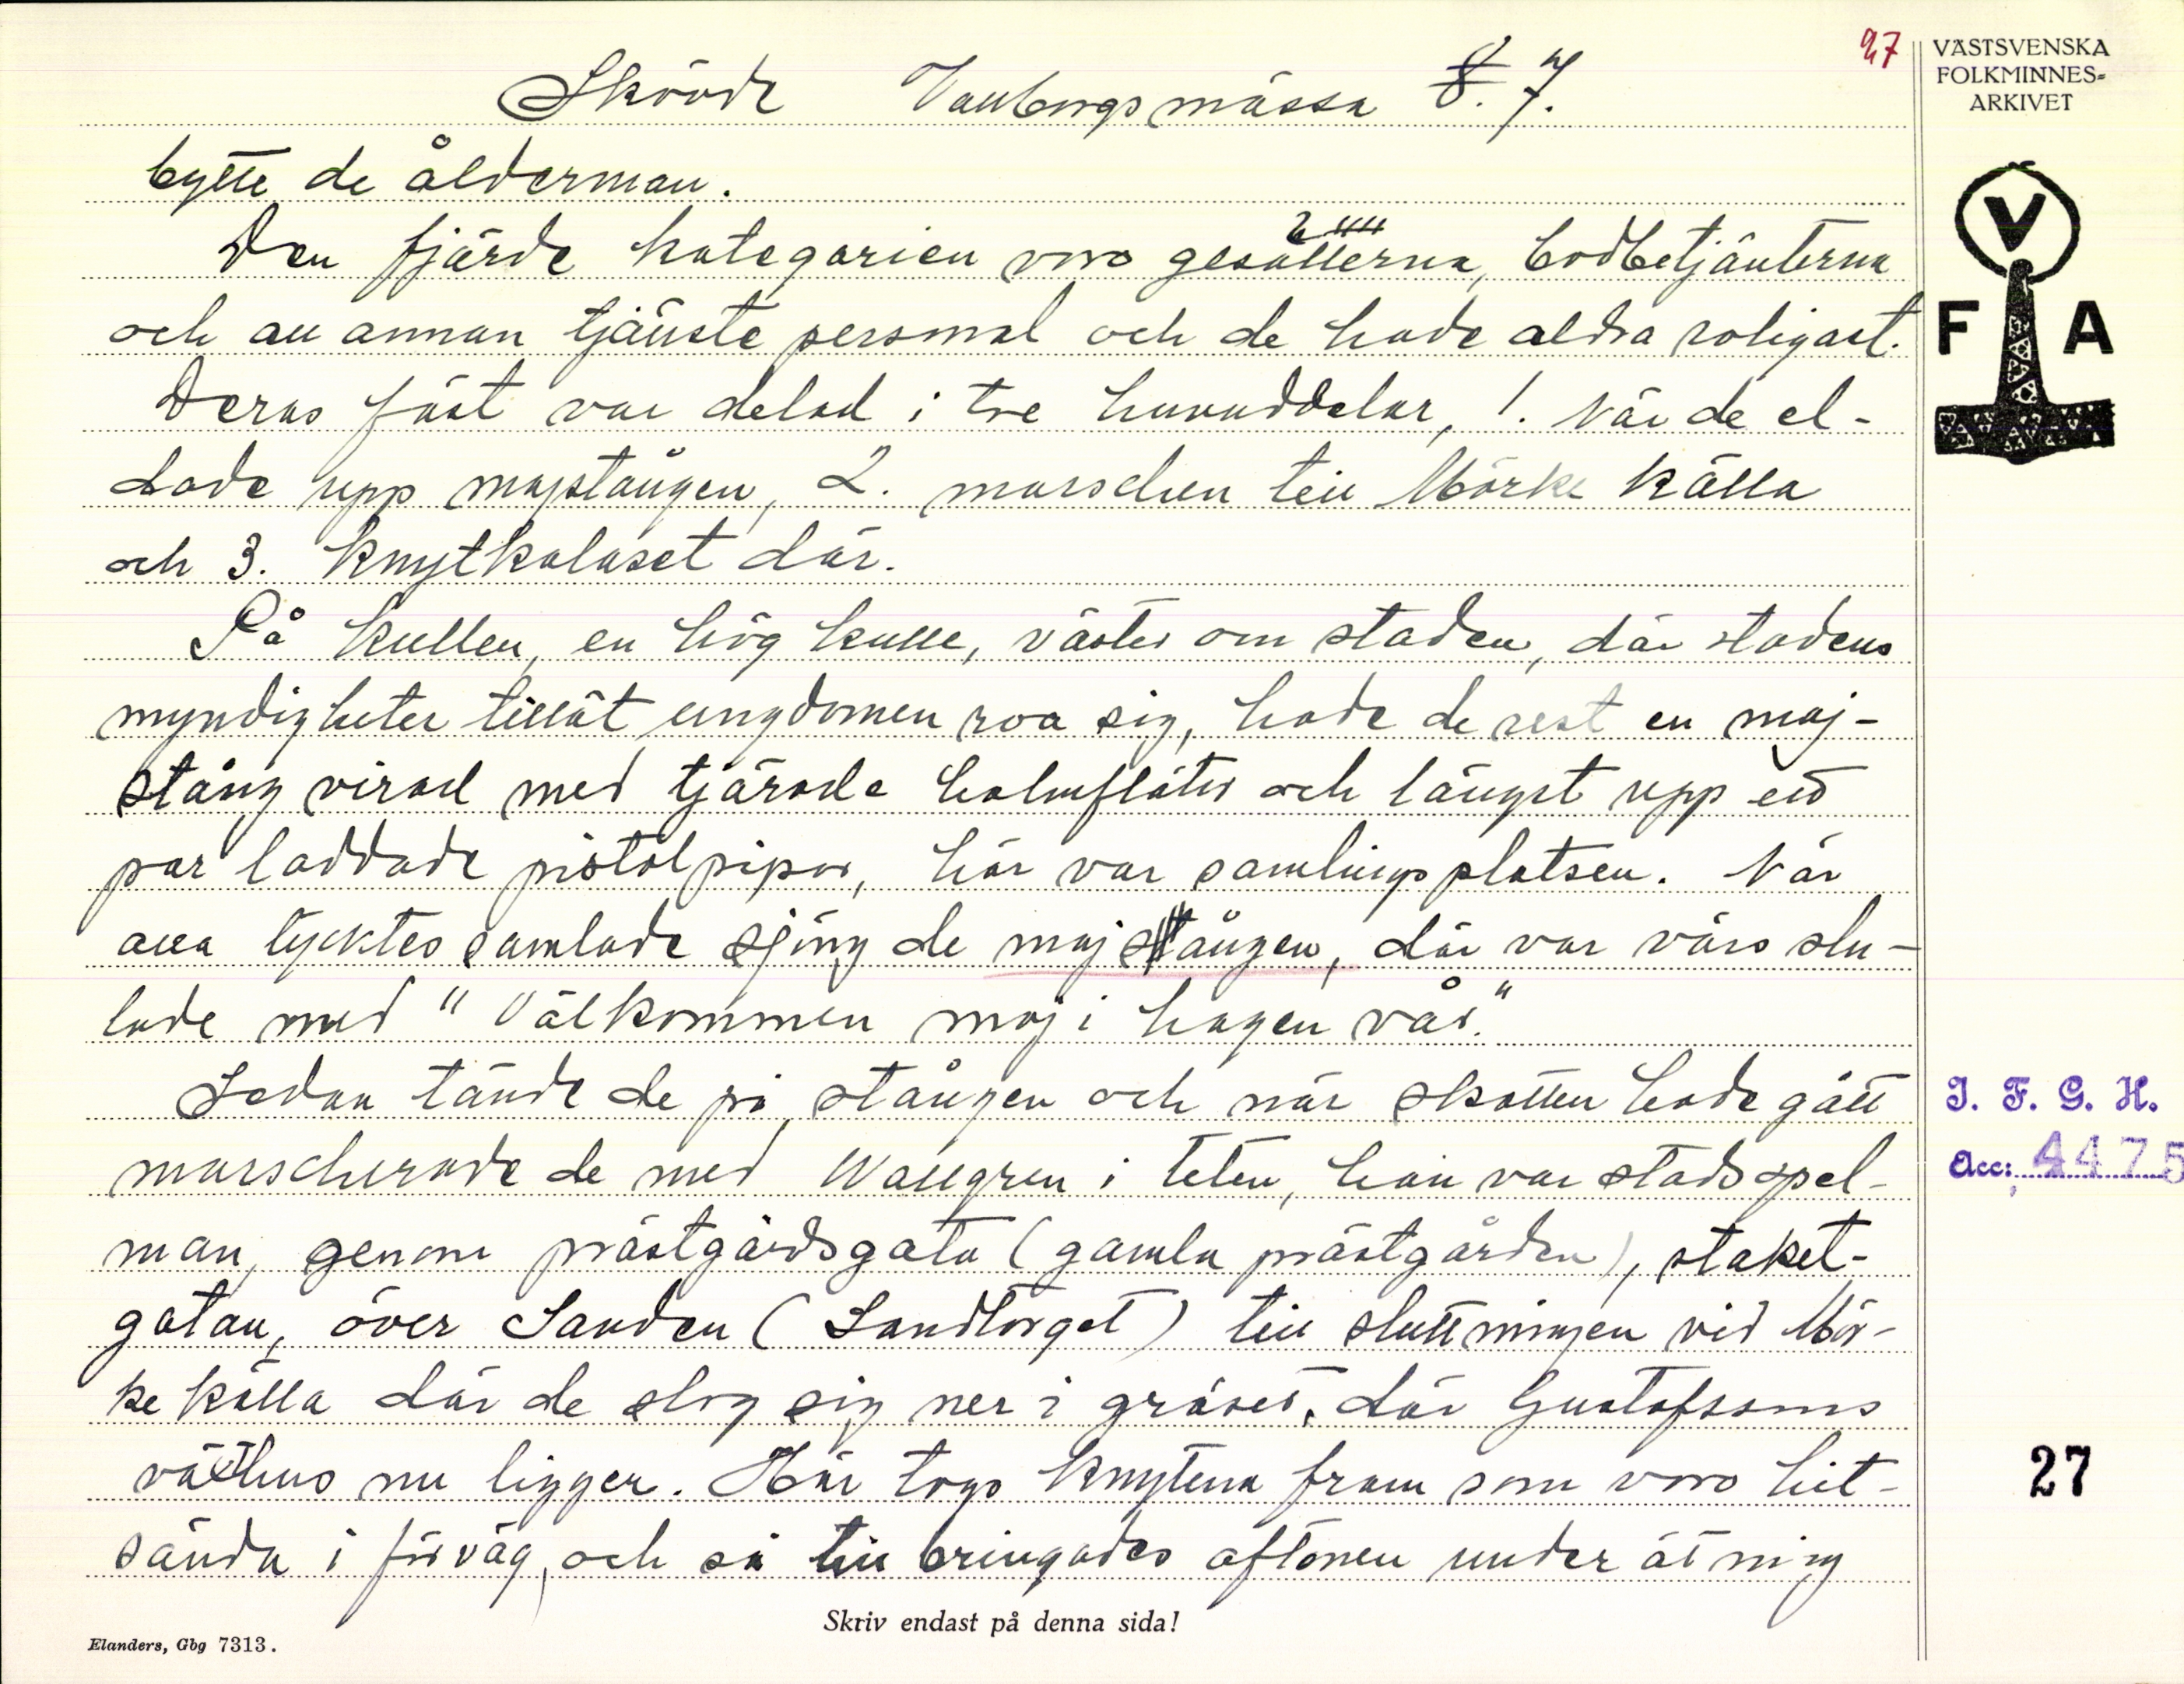 27
VÄSTSVENSKA
FOLKMINNES=
ARKIVET
V
F A
Skövde Valborgsmässa 8. 7.
bytte de ålderman.
Den fjärde kategorien voro gesällerna, bodbetjänterna
och all annan tjänste personal och de hade aldra roligast.
Deras fäst var delad i tre huvuddelar, 1. När de el-
dade upp majstången, 2. marschen till Mörke källa
och 3. Knytkalaset där.
På Kullen, en hög kulle, väster om staden, där stadens
myndigheter tillät ungdomen roa sig, hade de rest en maj-
stång virad med tjärade halmflätor och längst upp ett
par laddade pistolpipor, här var samlingsplatsen. När
alla tycktes samlade sjöng de maj stången, där var värs slu-
tade med "Välkommen maj i hagen vår."
Sedan tände de på stången och när skotten hade gått
marscherade de med Wallgren i teten, han var stadsspel-
man, genom prästgårdsgata (gamla prästgården), staket-
gatan, över Sanden (Sandtorget) till sluttningen vid Mör-
ke källa där de slog sig ner i gräset, där Gustafssons
växthus nu ligger. Här togs knytena fram som voro hit-
sända i förväg, och så till bringades aftonen under ätning
I. F. G. H.
Acc: 4475
27
Skriv endast på denna sida!
Elanders, Gbg 7313.